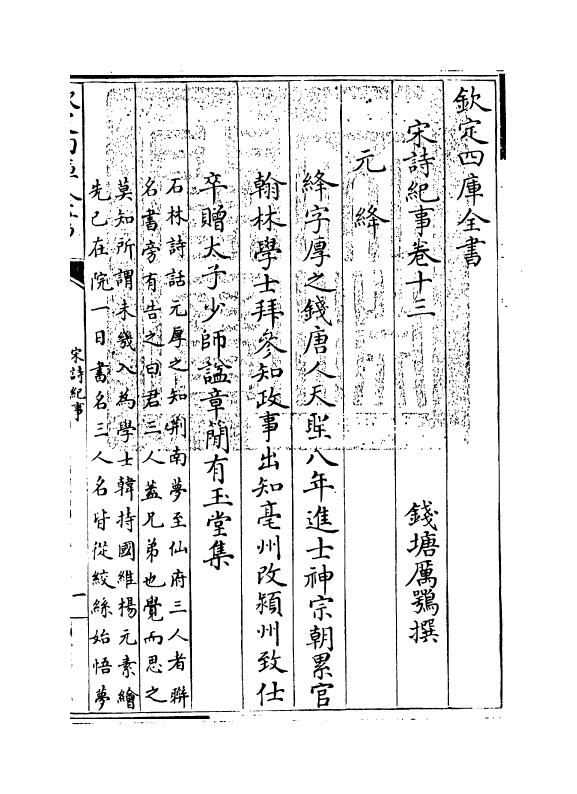 欽定四庫全書
宋詩紀事卷十三
錢塘厲鶚撰
元絳
絳字厚之錢唐人天聖八年進士神宗朝累官
翰林學士拜參知政事出知亳州改潁州致仕
卒贈太子少師諡章簡有玉堂集
石林詩話元厚之知荆南夢至仙府三人者聨
名書旁有告之曰君三人蓋兄弟也覺而思之
莫知所謂未幾入為學士韓持國維楊元素繪
先已在院一日書名三人名皆從絞絲始悟夢
宋詩紀事
一